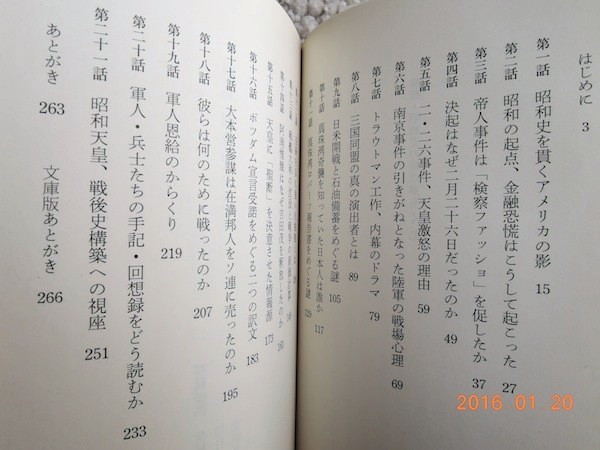 はじめに 3
第一話 昭和史を貫くアメリカの影 15
第二話 昭和の起点、金融恐慌はこうして起こった 27
第三話 帝人事件は「検察ファッショ」を促したか 37
第四話 決起はなぜ二月二十六日だったのか 49
第五話 二・二六事件、天皇激怒の理由 59
第六話 南京事件の引きがねとなった陸軍の戦場心理 69
第七話 トラウトマン工作、内幕のドラマ 79
第八話 三国同盟の真の演出者とは 89
第九話 日米開戦と石油備蓄をめぐる謎 105
第十話 真珠湾奇襲を知っていた日本人は誰か 117
第十一話 真珠湾 をめぐる謎 129
第十四話
第十五話 天皇に「聖断」を決意させた情報源 173
第十六話 ポツダム宣言受諾をめぐる二つの訳文 183
第十七話 大本営参謀は在満邦人をソ連に売ったのか 195
第十八話 彼らは何のために戦ったのか 207
第十九話 軍人恩給のからくり 219
第二十話 軍人・兵士たちの手記・回想録をどう読むか 233
第二十一話 昭和天皇、戦後史構築への視座 251
あとがき 263
文庫版あとがき 266
2016.01.20